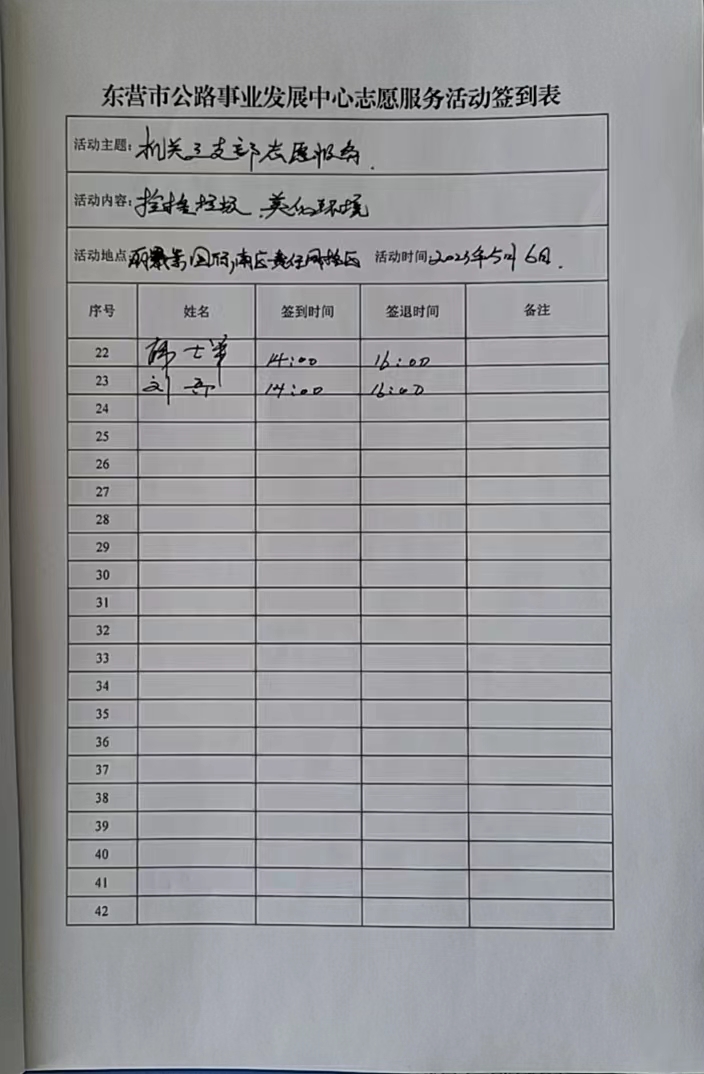 东营市公路事业发展中心志愿服务活动签到表
活动主题：机关三支部志愿服务.
活动内容：捡拾垃圾、美化环境
活动地点：南区责任网格区 活动时间：2025年5月6日.
序号 姓名 签到时间 签退时间 备注
22 士 14:00 16:00
23 刘 14:00 16:00
24
25
26
27
28
29
30
31
32
33
34
35
36
37
38
39
40
41
42